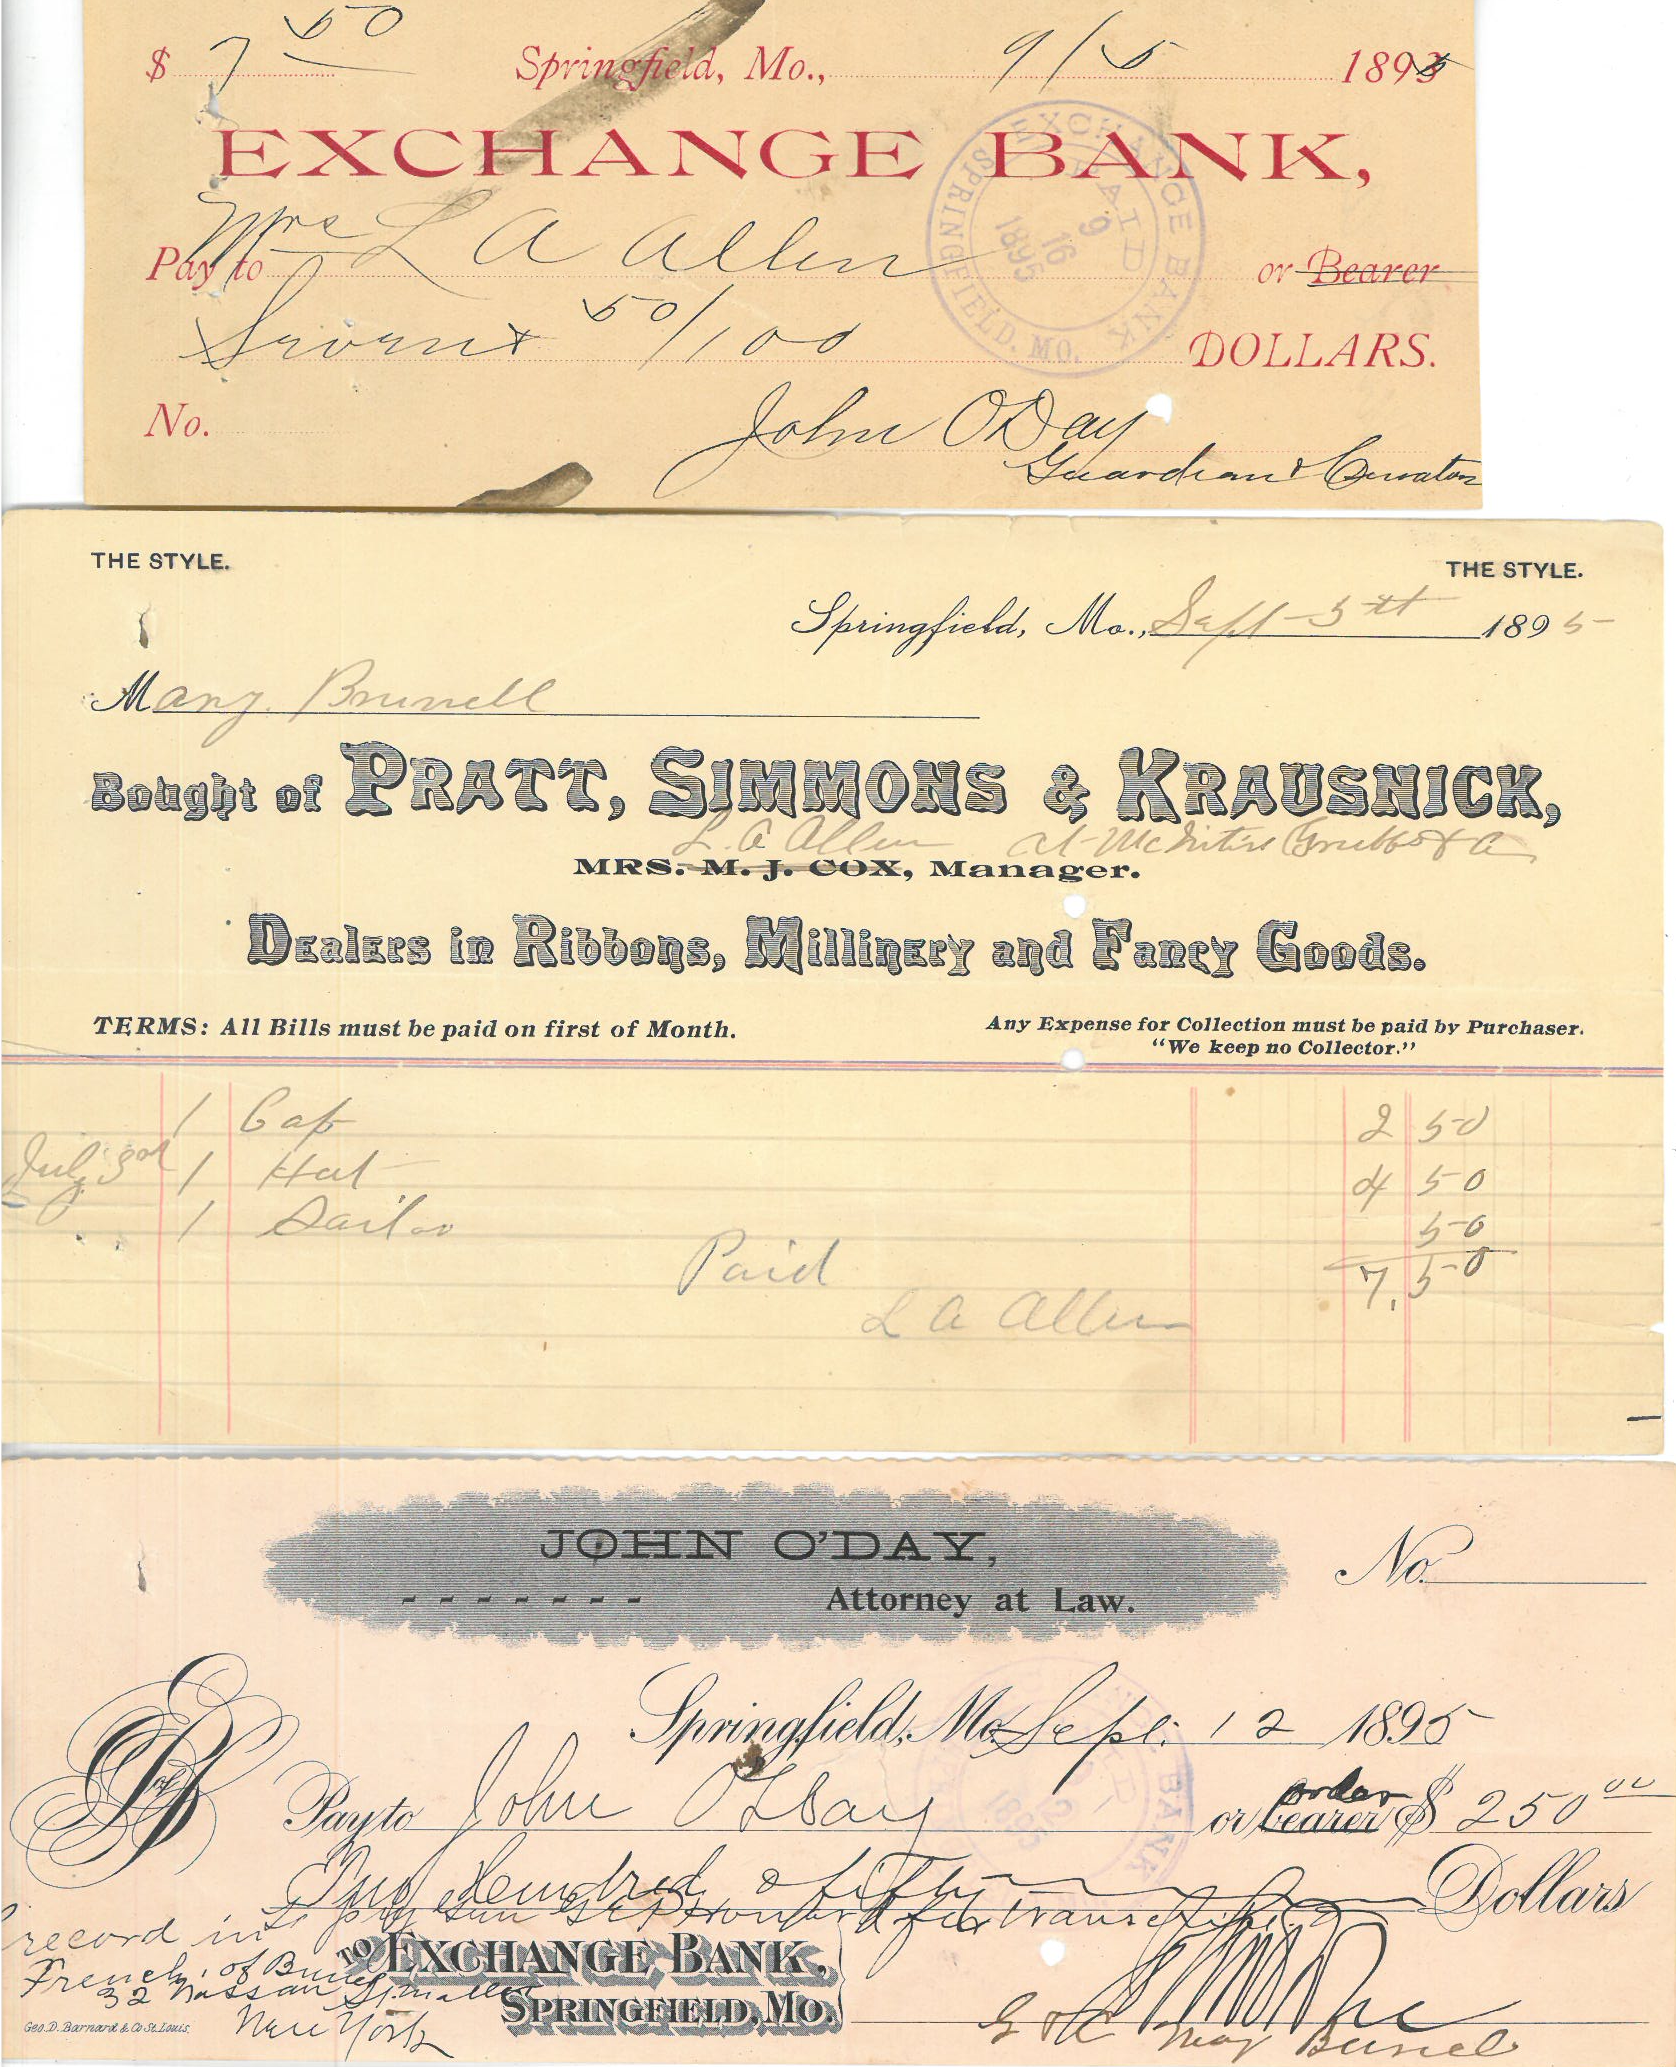 $ 7 50 Springfield, Mo., 9/5 1895
EXCHANGE BANK,
EXCHANGE BANK SPRINGFIELD, MO. PAID 9 16 1895
Pay to Mrs L A Allen or Bearer
Seven & 50/100 DOLLARS.
No. John O'Day
Guardian & Curator
THE STYLE. THE STYLE.
Springfield, Mo., Sept 5th 1895
Mary Brunell
Bought of PRATT, SIMMONS & KRAUSNICK,
L. A Allen at McIntire Grubbs & Co
MRS. M. J. COX, Manager.
Dealers in Ribbons, Millinery and Fancy Goods.
TERMS: All Bills must be paid on first of Month. Any Expense for Collection must be paid by Purchaser.
"We keep no Collector."
1 Cap 2 50
July 3rd 1 Hat 4 50
1 Sailor 50
7.50
Paid
L A Allen
JOHN O'DAY,
Attorney at Law.
No.
Springfield, Mo. Sept. 12 1895
Pay to John O'Day or bearer order $ 250 00
Two Hundred & fifty Dollars
To pay for transcript
record in
TO EXCHANGE BANK,
French of
32 Nassau St
SPRINGFIELD, MO.
New York
G & C May Brunel
Geo. D. Barnard & Co St. Louis.